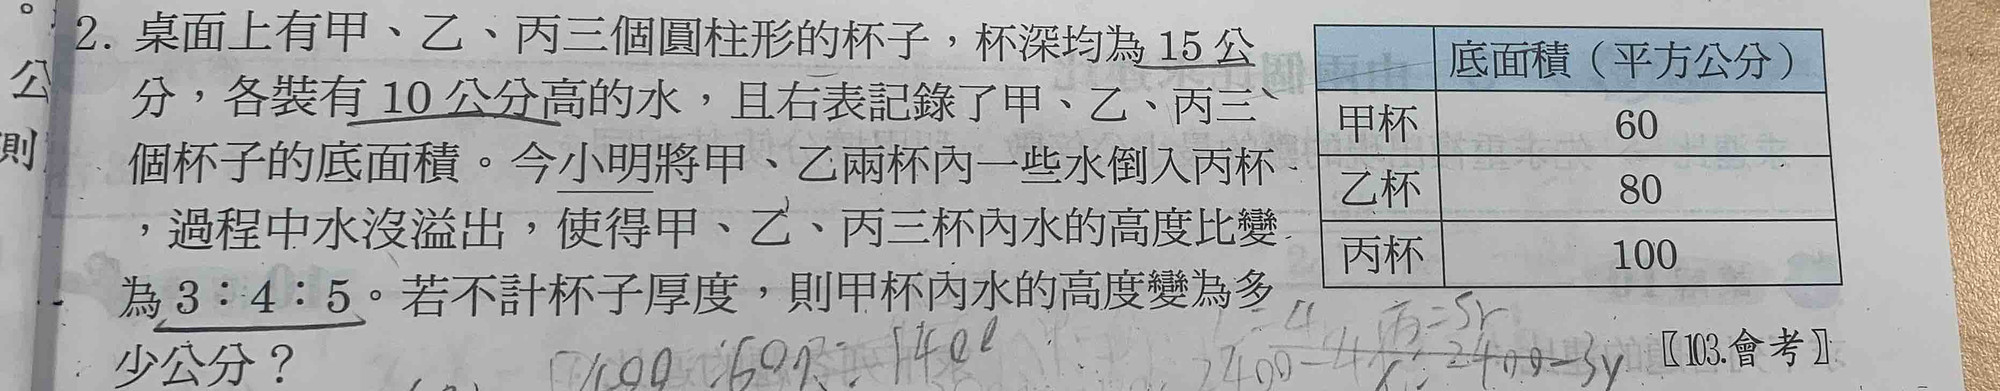 公
則
2. 桌面上有甲、乙、丙三個圓柱形的杯子，杯深均為 15 公
分，各裝有 10 公分高的水，且右表記錄了甲、乙、丙三
個杯子的底面積。今小明將甲、乙兩杯內一些水倒入丙杯
，過程中水沒溢出，使得甲、乙、丙三杯內水的高度比變
為 3：4：5。若不計杯子厚度，則甲杯內水的高度變為多
少公分？
底面積（平方公分）
甲杯 60
乙杯 80
丙杯 100
〖103.會考〗